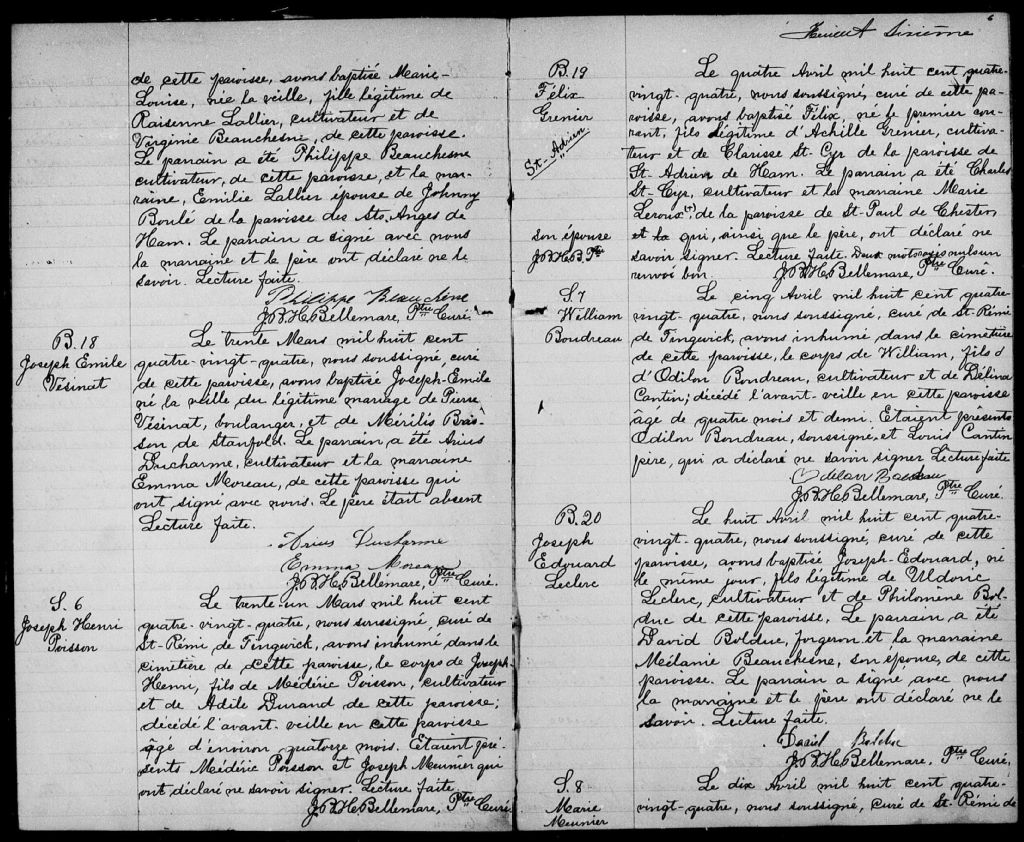 de cette paroisse, avons baptisé Marie-
Louise, née la veille, fille légitime de
Raisenne Lallier, cultivateur et de
Virginie Beauchesne, de cette paroisse.
Le parrain a été Philippe Beauchesne
cultivateur, de cette paroisse, et la mar-
raine, Emilie Lallier épouse de Johnny
Boulé de la paroisse des Sts. Anges de
Ham. Le parrain a signé avec nous
la marraine et le père ont déclaré ne le
savoir. Lecture faite.
Philippe Beauchene
J.B.H.Bellemare, Ptre Curé
B.18
Joseph Emile
Vésinat
Le trente Mars mil huit cent
quatre-vingt-quatre, nous soussigné, curé
de cette paroisse, avons baptisé Joseph-Emile
né la veille du légitime mariage de Pierre
Vésinat, boulanger, et de Mérilis Bris-
son de Stanfold. Le parrain a été Arius
Ducharme, cultivateur et la marraine
Emma Moreau, de cette paroisse qui
ont signé avec nous. Le père était absent
Lecture faite.
Arius Ducharme
Emma Moreau
J.B.H.Bellemare, Ptre Curé.
S. 6
Joseph Henri
Poisson
Le trente-un Mars mil huit cent
quatre-vingt-quatre, nous soussigné, curé de
St-Rémi de Tingwick, avons inhumé dans le
cimetière de cette paroisse, le corps de Joseph
Henri, fils de Médéric Poisson, cultivateur
et de Adile Durand de cette paroisse;
décédé l'avant-veille en cette paroisse
âgé d'environ quatorze mois. Etaient pré-
sents Médéric Poisson et Joseph Meunier qui
ont déclaré ne savoir signer. Lecture faite
J.B.H.Bellemare, Ptre Curé
6
Feuillet Sixième
B.19
Félix
Grenier
St-Adrien
Le quatre Avril mil huit cent quatre-
vingt-quatre, nous soussigné, curé de cette pa-
roisse, avons baptisé Félix, né le premier cou-
rant, fils légitime d'Achille Grenier, cultiva-
teur et de Clarisse St-Cyr de la paroisse de
St. Adrien de Ham. Le parrain a été Charles
St-Cyr, cultivateur et la marraine Marie
Leroix (+) de la paroisse de St-Paul de Chester,
et la qui, ainsi que le père, ont déclaré ne
savoir signer. Lecture faite. Deux mots rayés nuls un
renvoi bon. J.B.H.Bellemare, Ptre Curé.
son épouse
J.B.H.B. Ptre
S.7
William
Boudreau
Le cinq Avril mil huit cent quatre-
vingt-quatre, nous soussigné, curé de St-Rémi
de Tingwick, avons inhumé dans le cimetière
de cette paroisse, le corps de William, fils
d'Odilon Boudreau, cultivateur et de Délina
Cantin; décédé l'avant-veille en cette paroisse
âgé de quatre mois et demi. Etaient présents
Odilon Boudreau, soussigné, et Louis Cantin
père, qui a déclaré ne savoir signer Lecture faite
Odilon Boudreau
J.B.H.Bellemare, Ptre Curé.
B.20
Joseph
Edouard
Leclerc
Le huit Avril mil huit cent quatre-
vingt-quatre, nous soussigné, curé de cette
paroisse, avons baptisé Joseph-Edouard, né
le même jour, fils légitime de Uldoric
Leclerc, cultivateur et de Philomène Bol-
duc de cette paroisse. Le parrain a été
David Bolduc, forgeron et la marraine
Mélanie Beauchesne, son épouse, de cette
paroisse. Le parrain a signé avec nous
la marraine et le père ont déclaré ne le
savoir. Lecture faite.
David Bolduc
J.B.H.Bellemare, Ptre Curé,
S.8
Marie
Meunier
Le dix Avril mil huit cent quatre-
vingt-quatre, nous soussigné, curé de St-Rémi de